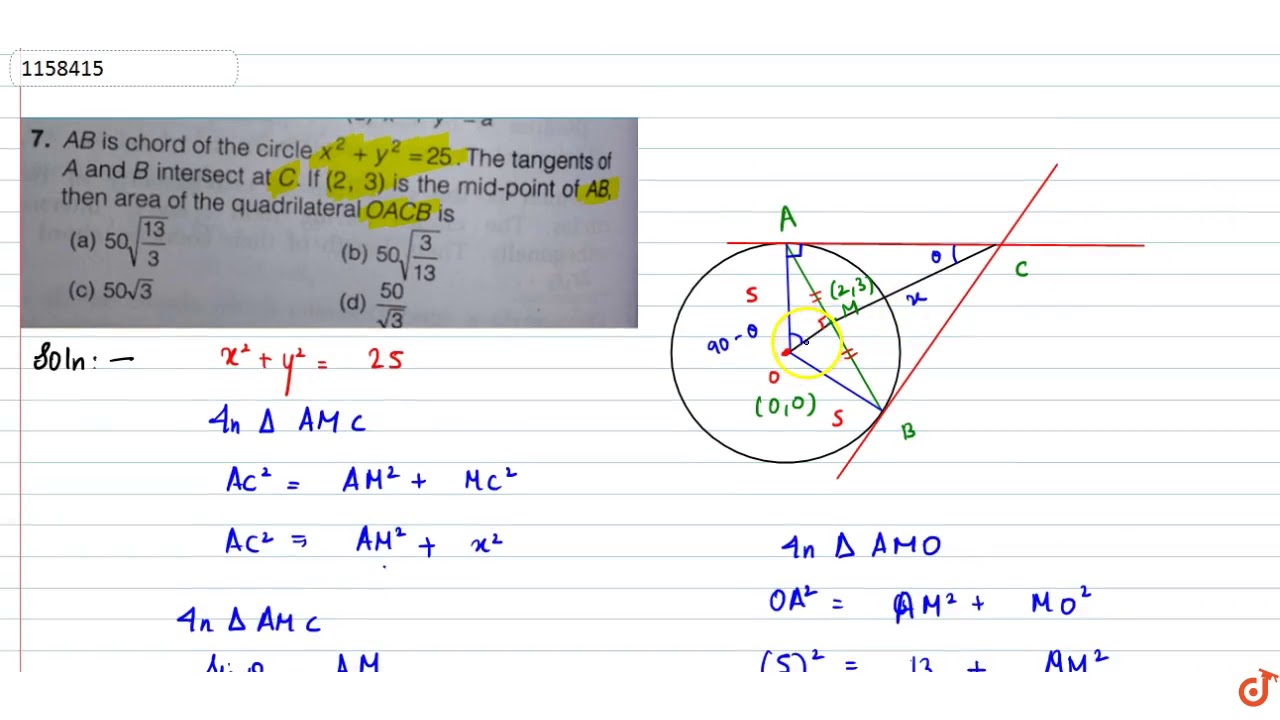 1158415
7. AB is chord of the circle x² + y² = 25. The tangents of
A and B intersect at C. If (2, 3) is the mid-point of AB,
then area of the quadrilateral OACB is
(a) 50√(13/3)
(b) 50√(3/13)
(c) 50√3
(d) 50/√3
Soln: —
x² + y² = 25
In Δ AMC
AC² = AM² + MC²
AC² = AM² + x²
In Δ AMC
A
θ
C
(2,3)
M
x
5
90 - θ
O
(0,0)
5
B
In Δ AMO
OA² = AM² + MO²
(5)² = 13 + AM²